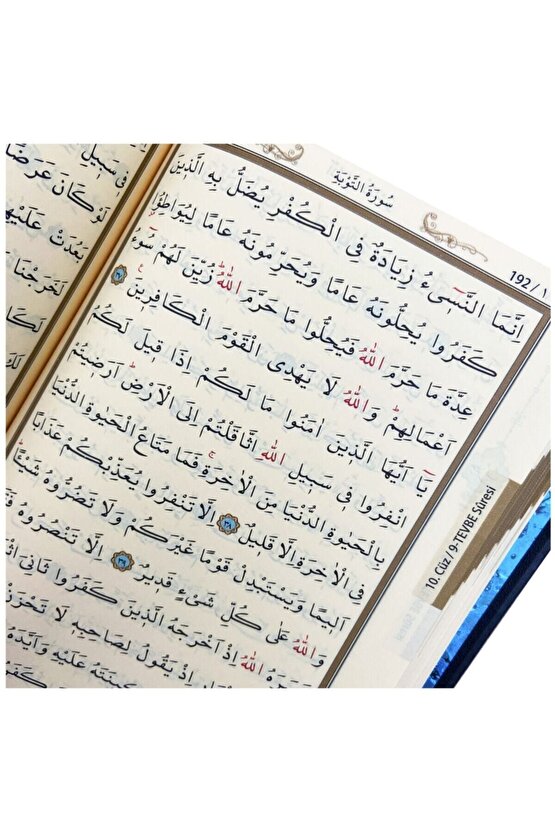 سُورَةُ التَّوْبَةِ
192 / 1
اِنَّمَا النَّس۪ٓيءُ زِيَادَةٌ فِي الْكُفْرِ يُضَلُّ بِهِ الَّذ۪ينَ
كَفَرُوا يُحِلُّونَهُ عَامًا وَيُحَرِّمُونَهُ عَامًا لِيُوَاطِؤُ۫ا
عِدَّةَ مَا حَرَّمَ اللّٰهُ فَيُحِلُّوا مَا حَرَّمَ اللّٰهُ زُيِّنَ لَهُمْ سُٓوءُ
اَعْمَالِهِمْ وَاللّٰهُ لَا يَهْدِي الْقَوْمَ الْكَافِر۪ينَ ٣٧
يَٓا اَيُّهَا الَّذ۪ينَ اٰمَنُوا مَا لَكُمْ اِذَا ق۪يلَ لَكُمُ
انْفِرُوا ف۪ي سَب۪يلِ اللّٰهِ اثَّاقَلْتُمْ اِلَى الْاَرْضِ اَرَض۪يتُمْ
بِالْحَيٰوةِ الدُّنْيَا مِنَ الْاٰخِرَةِ فَمَا مَتَاعُ الْحَيٰوةِ الدُّنْيَا
فِي الْاٰخِرَةِ اِلَّا قَل۪يلٌ ٣٨ اِلَّا تَنْفِرُوا يُعَذِّبْكُمْ عَذَابًا
اَل۪يمًا وَيَسْتَبْدِلْ قَوْمًا غَيْرَكُمْ وَلَا تَضُرُّوهُ شَيْـًٔا
وَاللّٰهُ عَلٰى كُلِّ شَيْءٍ قَد۪يرٌ ٣٩ اِلَّا تَنْصُرُوهُ
اللّٰهُ اِذْ اَخْرَجَهُ الَّذ۪ينَ كَفَرُوا ثَانِيَ
اِذْ يَقُولُ لِصَاحِبِه۪ لَا تَحْزَنْ
اللّٰهُ
عَلَيْهِ وَاَيَّدَهُ
10. Cüz / 9-TEVBE Sûresi
ف۪ي سَب۪يلِ
لَوْ كَانَ عَرَضًا
بَعُدَتْ عَلَيْهِمُ
لَخَرَجْنَا